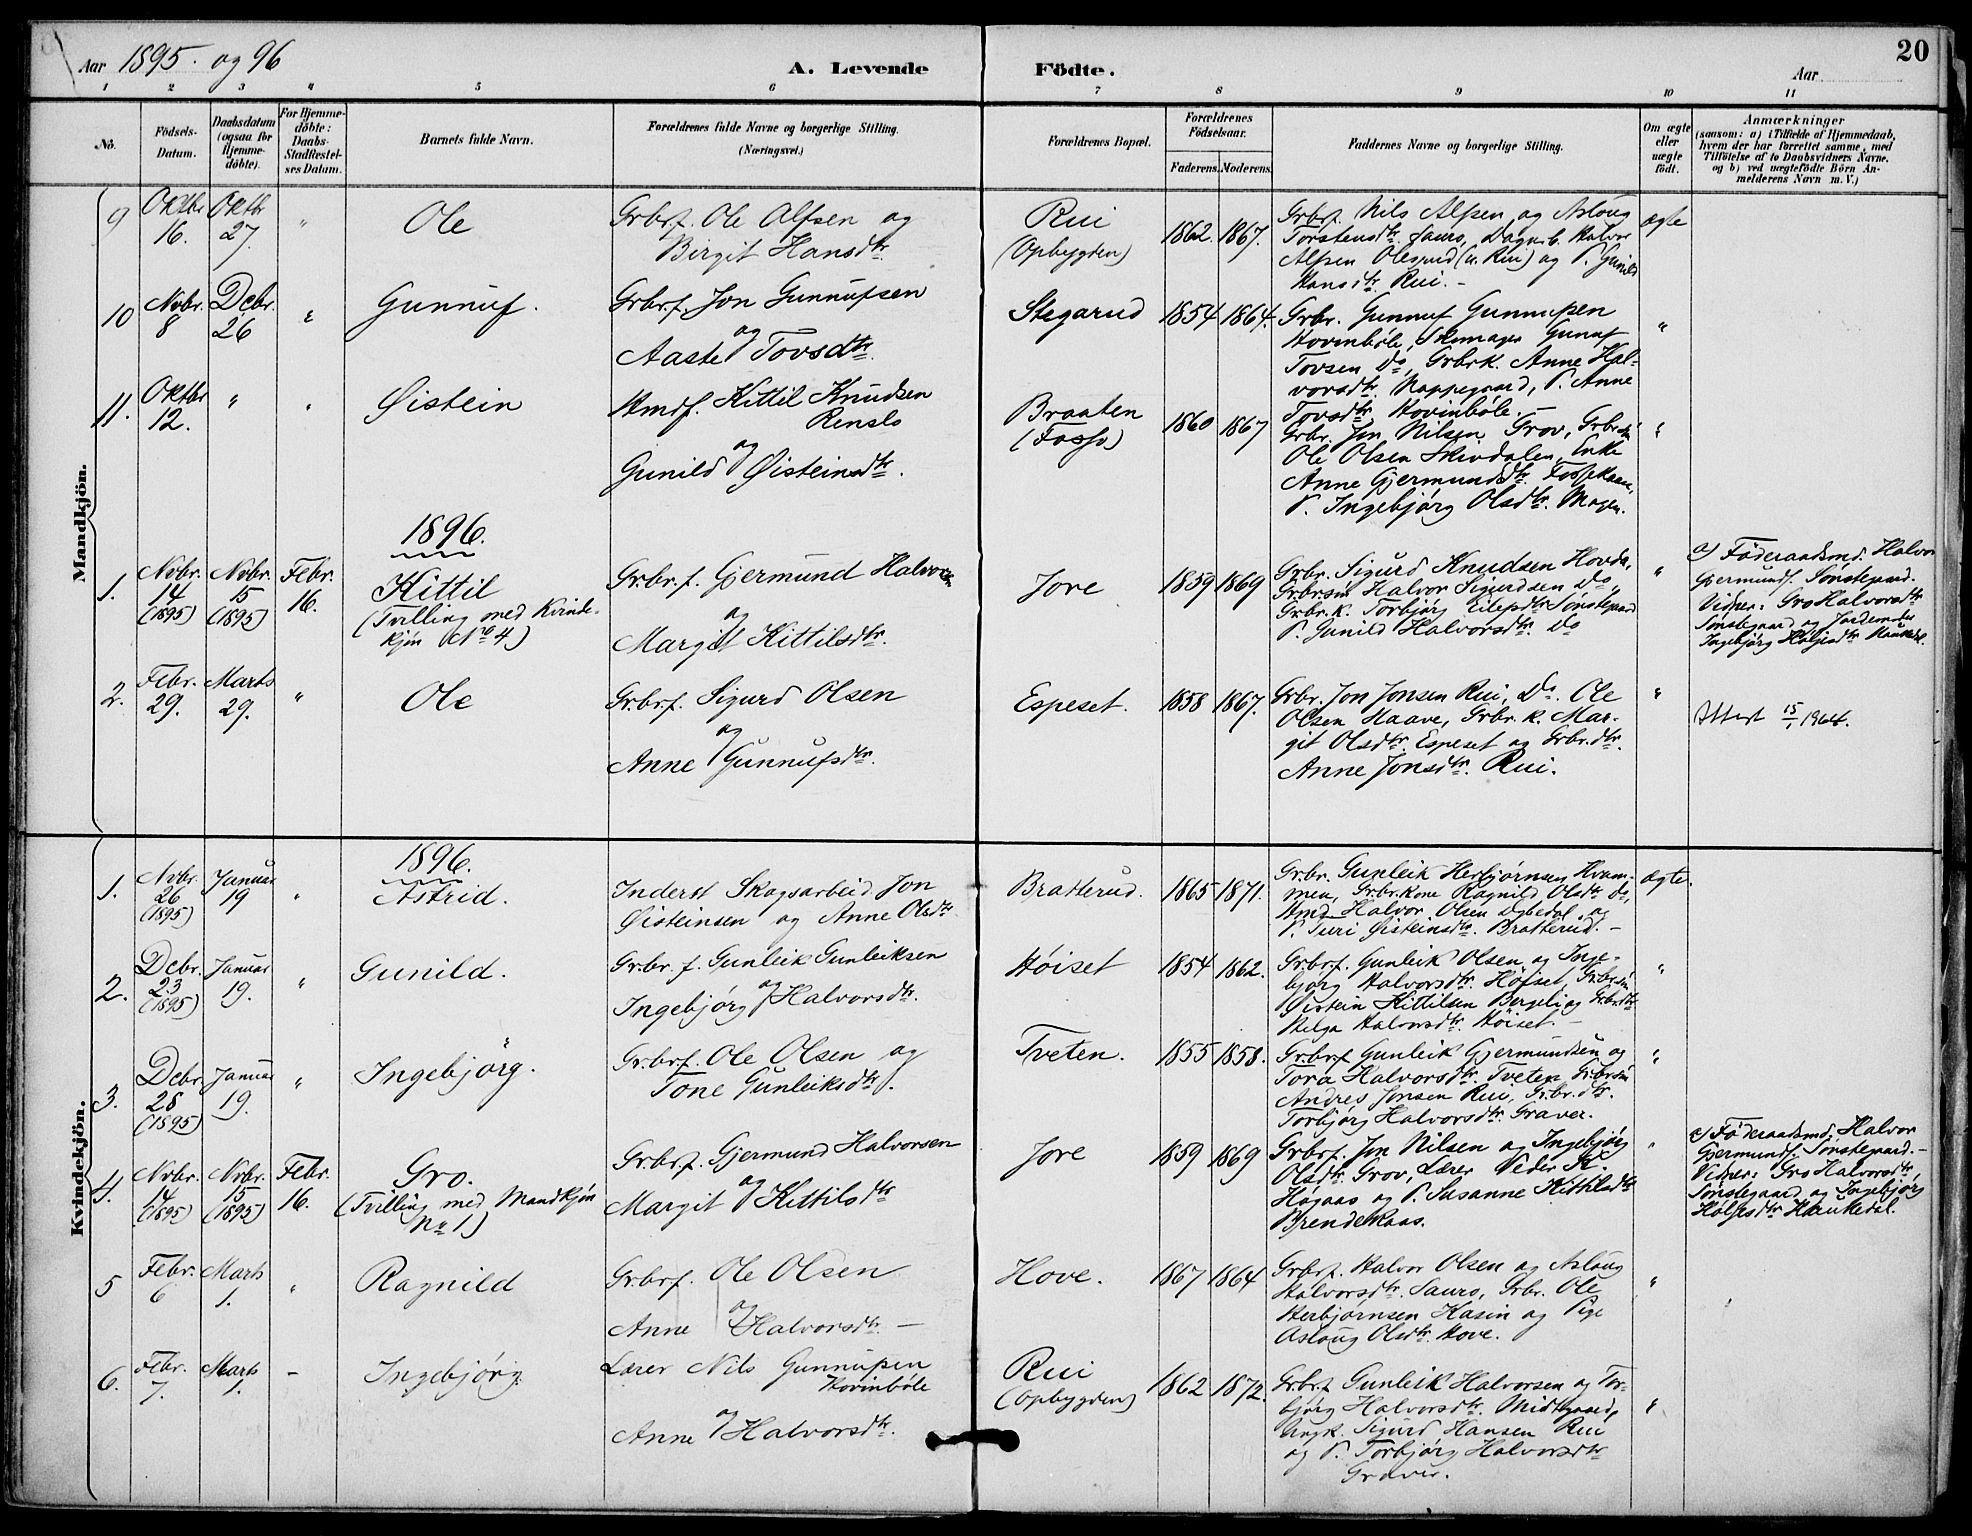 Aar 1895. og 96
A. Levende Födte.
Aar
20
1 2 3 4 5 6 7 8 9 10 11
No.
Födsels-Datum.
Daabsdatum (ogsaa for Hjemme-döbte).
For Hjemme-döbte: Daabs-Stadfæstel-ses Datum.
Barnets fulde Navn.
Forældrenes fulde Navne og borgerlige Stilling.
(Næringsvei.)
Forældrenes Bopæl.
Forældrenes Födselsaar.
Faderens. Moderens.
Faddernes Navne og borgerlige Stilling.
Om ægte eller uægte födt.
Anmærkninger
(saasom: a) i Tilfælde af Hjemmedaab, hvem der har forrettet samme, med Tilföielse af to Daabsvidners Navne, og b) ved uægtefödte Börn An-melderens Navn m. V.)
Mandkjön.
9 Oktbr 16. Oktbr 27. " Ole
Grbr.f. Ole Alfsen og
Birgit Hansdtr.
Rui
(Opbygden)
1862. 1867.
Grbr.f. Nils Alfsen og Aslaug
Torstensdtr. Sauro, Dagarb. Halvor
Alfsen Olsgrud (u. Rui) og P. Gunild
Hansdtr. Rui. -
ægte
10 Nvbr. 8 Debr. 26 " Gunnuf.
Grbr.f. Jon Gunnufsen
og
Aaste Tovsdtr.
Stegarud 1854 1864.
Grbr. Gunnuf Gunnufsen
Hovinböle, Skomager Gunuf
Tovsen Do, Grbrk. Anne Hal-
vorsdtr. Nappegaard, P. Anne
Tovsdtr. Hovinböle. -
"
11. Oktbr 12. " " Øistein
Hmdf. Kittil Knudsen
Renslo
og
Gunild Øisteinsdtr.
Braaten
(Fosso)
1860 1867
Grbr. Jon Nilsen Grov, Grbrsön
Ole Olsen Skivdalen, Enke
Anne Gjermundsdtr. Fossekaas,
P. Ingebjörg Olsdtr. Mogen.
"
1896.
1. Nvbr. 14 (1895) Nvbr. 15 (1895) Febr. 16. Kittil
(Tvilling med Kvinde-
kjön No 4)
Grbr.f. Gjermund Halvorsen
og
Margit Kittilsdtr.
Jore 1859 1869
Grbr. Sigurd Knudsen Hovda,
Grbrsön Halvor Sigurdsen Do,
Grbr.k. Torbjörg Eilefsdtr. Sönstegaard
P. Gunild Halvorsdtr. Do
"
a) Föderaadsmd. Halvor
Gjermunds. Sönstegaard.
Vidner: Gro Halvorsdtr
Sönstegaard og Jordemoder
Ingebjörg Holjesdtr. Haukedal.
2. Febr. 29. Marts 29. " Ole
Grbr.f. Sigurd Olsen
og
Anne Gunnufsdtr.
Espeset. 1858 1867.
Grbr. Jon Jonsen Rui, Do. Ole
Olsen Haave, Grbr.k. Mar-
git Olsdtr. Espeset og Grbr.dtr.
Anne Jonsdtr. Rui.
"
Attest
Kvindekjön.
1896.
1. Nvbr. 26 (1895) Januar 19 " Astrid.
Inderst Skogsarbeid. Jon
Øisteinsen og Anne Olsdtr
Bratterud. 1865 1871.
Grbr. Gunleik Herbjörnsen Kvam-
men, Grbr.kone Ragnild Olsdtr Do,
Hmd. Halvor Olsen og
P. Turi Øisteinsdtr. Bratterud. -
ægte.
2. Debr. 23 (1895) Januar 19. " Gunild.
Grbr.f. Gunleik Gunleiksen
og
Ingebjörg Halvorsdtr.
Höiset 1854 1862.
Grbr.f. Gunleik Olsen og Inge-
björg Halvorsdtr. Höiset, Grbrsön
Øistein Kittilsen Bergeli og Grbrdtr
Helga Halvorsdtr. Höiset. -
"
3. Debr. 28 (1895) Januar 19. " Ingebjörg.
Grbr.f. Ole Olsen og
Tone Gunleiksdtr.
Tveten. 1855 1858.
Grbr.f. Gunleik Gjermundsen og
Tora Halvorsdtr. Tveten, Grbrsön
Andres Jonsen Rui, Grbr.dtr.
Torbjörg Halvorsdtr. Graver.
"
4. Nvbr. 14 (1895) Nvbr. 15 (1895) Febr. 16. Gro.
(Tvilling med Mandkjön
No 1)
Grbr.f. Gjermund Halvorsen
og
Margit Kittilsdtr
Jore 1859 1869
Grbr.f. Jon Nilsen og Ingebjörg
Olsdtr. Grov, Lærer Peder K.
Högaas og P. Susanne Kittilsdtr
Brendekaas.
"
a) Föderaadsmd. Halvor
Gjermunds. Sönstegaard. -
Vidner: Gro Halvorsdtr
Sönstegaard og Ingebjörg
Holjesdtr Haukedal.
5 Febr. 6 Marts 1. " Ragnild
Grbr.f. Ole Olsen
og
Anne Halvorsdtr. -
Hove. 1867 1864
Grbr.f. Halvor Olsen og Aslaug
Halvorsdtr. Sauro, Grbr. Ole
Herbjörnsen Kasin og Pige
Aslaug Olsdtr. Hove.
"
6. Febr. 7. Marts 1. - Ingebjörg.
Lærer Nils Gunnufsen
Hovinböle
og
Anne Halvorsdtr.
Rui
(Opbygden)
1862 1872.
Grbr.f. Gunleik Halvorsen og Tor-
björg Halvorsdtr. Midtgaard,
Ungk. Sigurd Hansen Rui
og P. Torbjörg Halvorsdtr
Graver.
"